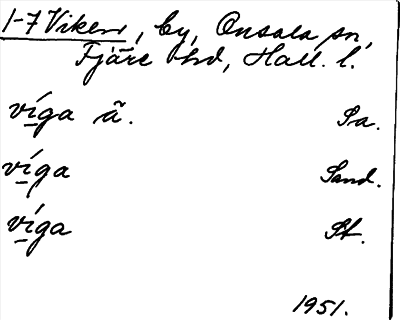 1-7 Viken, by, Onsala sn,
Fjäre hd, Hall. l.
víga ã. Sa.
víga Sand.
víga St.
1951.